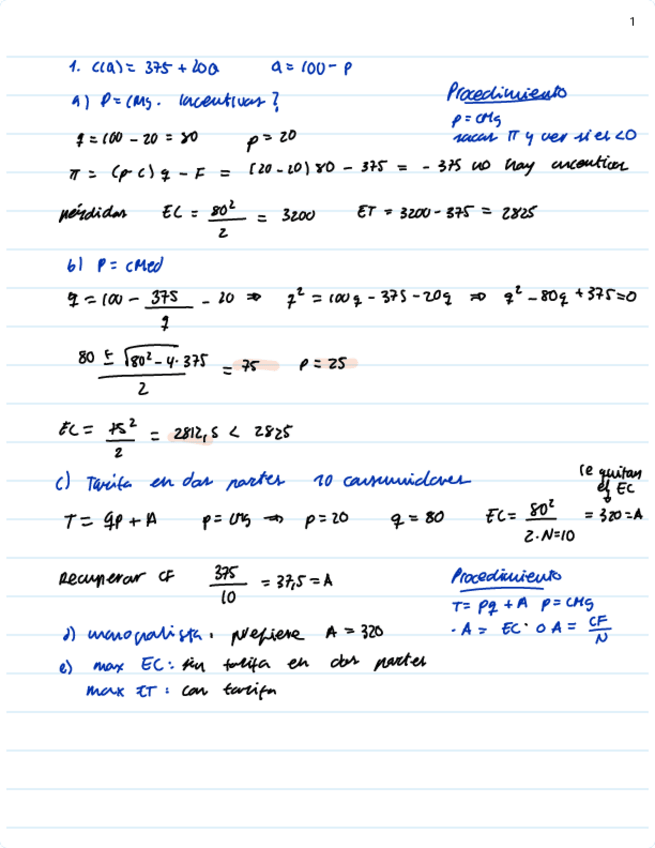 1
1. C(Q) = 375 + 20Q    Q = 100 - P
a) P = CMg. Incentivos?
Procedimiento
p = CMg
sacar π y ver si es < 0
q = 100 - 20 = 80    p = 20
π = (p - c) q - F = (20 - 20) 80 - 375 = - 375 no hay incentivos
pérdidas    EC = 80²/2 = 3200    ET = 3200 - 375 = 2825
b) P = CMed
q = 100 - 375/q - 20 ⇒ q² = 100q - 375 - 20q ⇒ q² - 80q + 375 = 0
(80 ± √(80² - 4·375))/2 = 75    p = 25
EC = 75²/2 = 2812,5 < 2825
c) Tarifa en dos partes    10 consumidores
le quitan el EC
T = qp + A    p = CMg ⇒ p = 20    q = 80    EC = 80²/(2·N=10) = 320 = A
Recuperar CF    375/10 = 37,5 = A
Procedimiento
T = pq + A    p = CMg
· A = EC · o A = CF/N
d) monopolista. prefiere A = 320
e) max EC: sin tarifa en dos partes
max ET: con tarifa